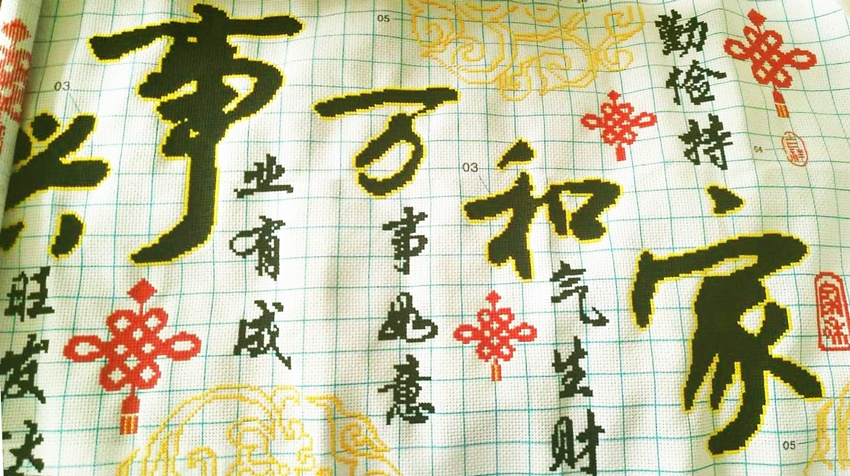 家和万事兴
勤俭持
气生财
事如意
业有成
旺发达
05
03
03
04
05